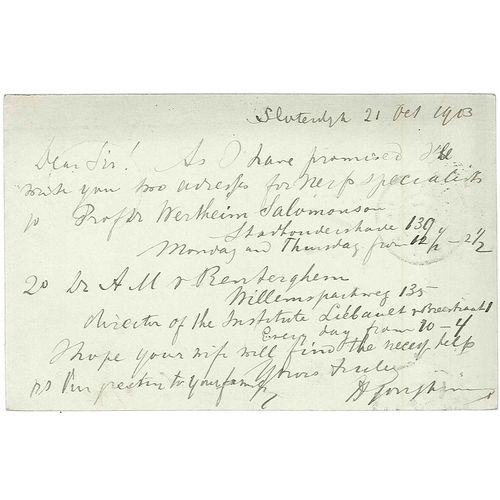 Sloterdyk 21 Oct 1903
Dear Sir! As I have promised I'll
write you two adresses for nerfspecialists
1o Prof Dr Wertheim Salomonson
Stadhouderskade 139
Monday and Thursday from 12 1/2 - 2 1/2
2o Dr A M v Renterghem
Willemsparkweg 135
director of the Institute Liébault v Breestraat 1
Every day from 10 - 4
I hope your wife will find the necess. help
greetin to your family
Yours truly